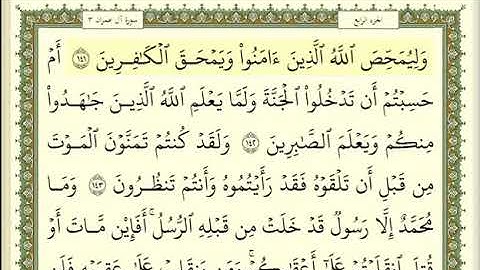 سورة آل عمران ٣
الجزء الرابع
وَلِيُمَحِّصَ ٱللَّهُ ٱلَّذِينَ ءَامَنُواْ وَيَمۡحَقَ ٱلۡكَٰفِرِينَ ١٤١ أَمۡ
حَسِبۡتُمۡ أَن تَدۡخُلُواْ ٱلۡجَنَّةَ وَلَمَّا يَعۡلَمِ ٱللَّهُ ٱلَّذِينَ جَٰهَدُواْ
مِنكُمۡ وَيَعۡلَمَ ٱلصَّٰبِرِينَ ١٤٢ وَلَقَدۡ كُنتُمۡ تَمَنَّوۡنَ ٱلۡمَوۡتَ
مِن قَبۡلِ أَن تَلۡقَوۡهُ فَقَدۡ رَأَيۡتُمُوهُ وَأَنتُمۡ تَنظُرُونَ ١٤٣ وَمَا
مُحَمَّدٌ إِلَّا رَسُولٞ قَدۡ خَلَتۡ مِن قَبۡلِهِ ٱلرُّسُلُۚ أَفَإِيْن مَّاتَ أَوۡ
قُتِلَ ٱنقَلَبۡتُمۡ عَلَىٰٓ أَعۡقَٰبِكُمۡۚ وَمَن يَنقَلِبۡ عَلَىٰ عَقِبَيۡهِ فَلَن